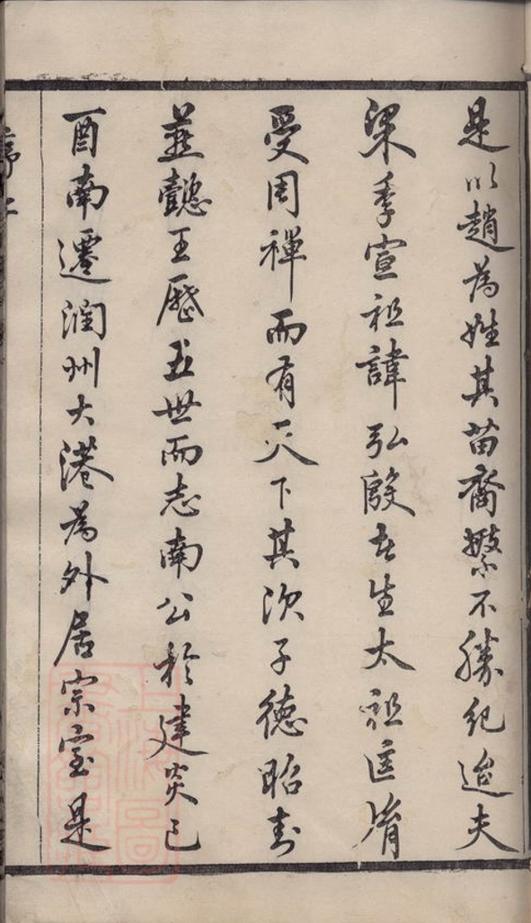 是以趙為姓其苗裔繁不勝紀迨夫
梁季宣祖諱弘殷者生太祖匡胤
受周禪而有天下其次子德昭封
燕懿王歷五世而志南公於建炎己
酉南遷潤州大港為外居宗室是